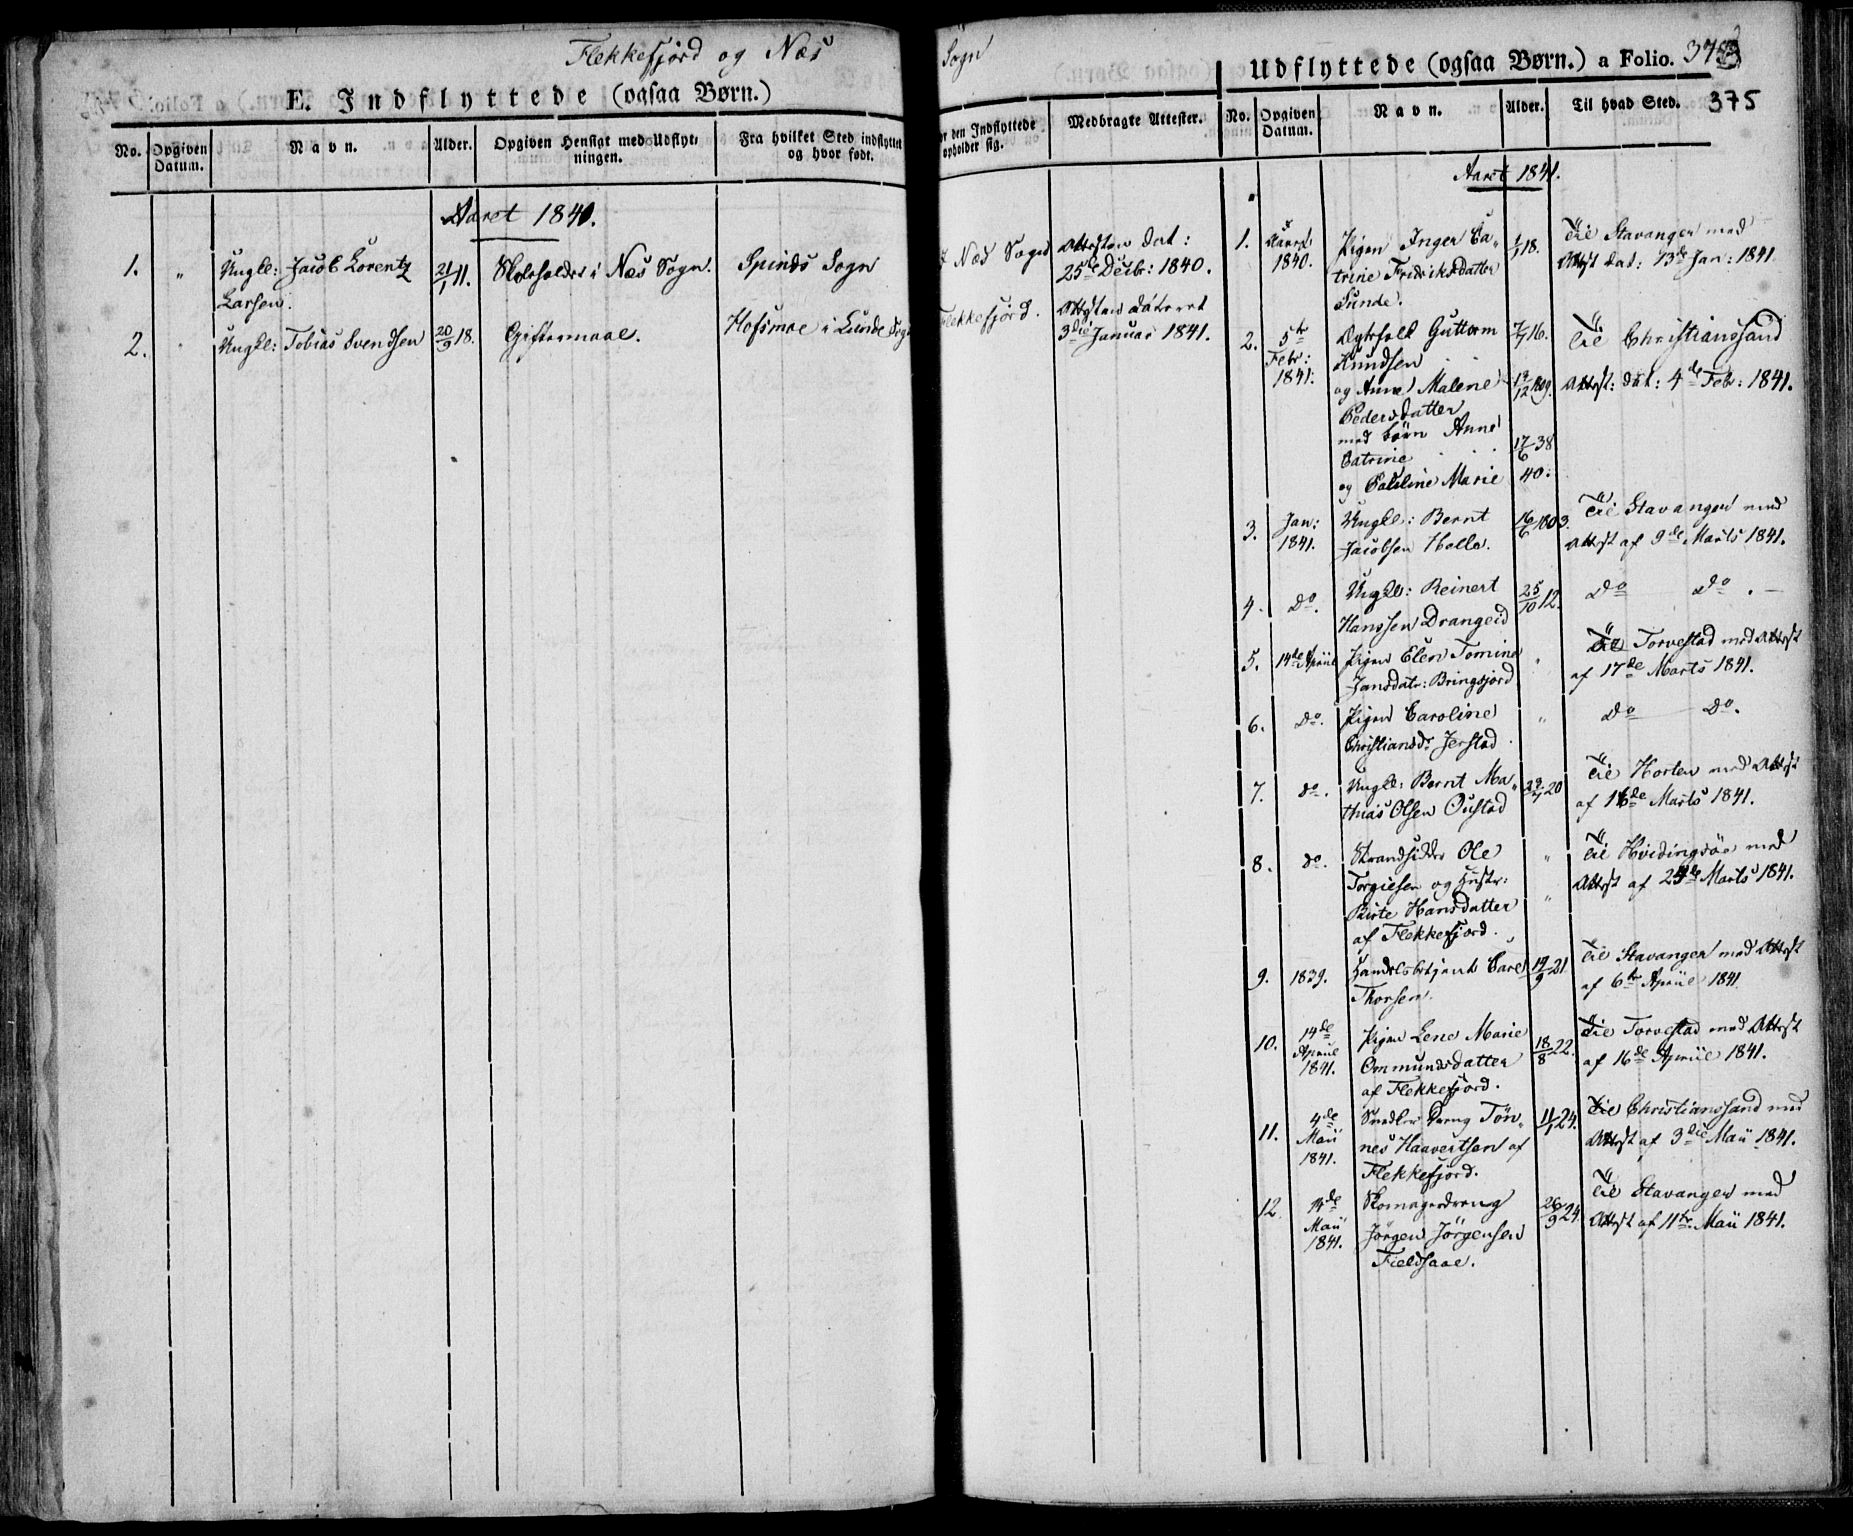 Flekkefjord og Næs
E. Indflyttede (ogsaa Børn.)
No. Opgiven Datum. Navn. Alder. Opgiven Hensigt med Udflyt-
ningen. Fra hvilket Sted indflyttet
og hvor født.
Aaret 1841.
1. " Ungk: Jacob Lorentz 21/1 11. Skoleholder i Næs Sogn. Spinds Sogn
Larsen.
2. " Ungk: Tobias Svendsen 20/9 18. Giftermaal. Hofsmoe i Lunde Sogn
Sogn
or den Indflyttede
opholder sig. Medbragte Attester.
Næs Sogn Attesten dat:
25de Decbr: 1840.
Flekkefjord. Attesten dateret
3die Januar 1841.
Udflyttede (ogsaa Børn.) a Folio. 373
375
No. Opgiven
Datum. Navn. Alder. Til hvad Sted.
Aaret 1841.
1. 1840. Pigen Inger Ca- 18. Til Stavanger med
trine Fredriksdatter Attest dat: 13de Jan: 1841
Sunde.
2. 5te Guttorm 7/7 16. Til Christianssand
Febr: Knudsen
1841. og Anne Malene 13/12 1809. Attest: dat: 4de Febr: 1841.
Pedersdatter
med børn Anne
Catrine 17/6 38
og Pauline Marie 40.
3. Jan: Ungk: Bernt 16/6 1803. Til Stavanger med
1841. Jacobsen Helle. Attest af 9de Marts 1841.
4. Do. Ungk: Reinert 25/10 12. Do Do. —
Hanssen Drangeid
5. 14de April Pigen Elen Tomine " Til Torvestad med Attest
Jansdatr: Bringsjord af 17de Marts 1841.
6. Do. Pigen Caroline " Do Do.
Christiansdr Jerstad
7. do. Ungk: Bernt Ma- 20 Til Horten med Attest
thias Olsen Oustad af 16de Marts 1841.
8. do. Strandsidder Ole " Til Hvidingsøe med
Torgiesen og Hustr: Attest af 24de Marts 1841.
Birte Hansdatter "
af Flekkefjord.
9. 1839. Handelsbetjent Carl 19/9 21. Til Stavanger med Attest
Thorsen. af 6te April 1841
10. 14de Pigen Lene Marie 18/8 22. Til Torvestad med Attest
April Ommundsdatter af 16de April 1841.
1841. af Flekkefjord.
11. 4de Snedker Dreng Tøn- 11/1 24. Til Christianssand med
Maii nes Haavertsen af Attest af 3die Maii 1841.
1841. Flekkefjord.
12. 14de Skomagerdreng 26/9 24. Til Stavanger med
Maii Jörgen Jörgensen Attest af 11te Maii 1841.
1841. Fieldsaae.